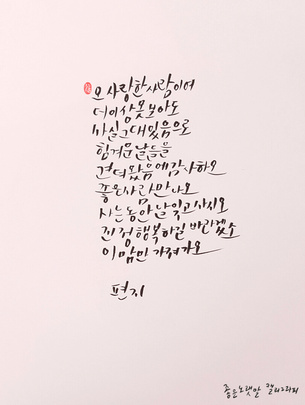 오 사랑한 사람이여
더 이상 못보아도
사실 그대 있음으로
힘겨운 날들을
견뎌 왔음에 감사하오
좋은 사람 만나오
사는 동안 날 잊고 사시오
진정 행복하길 바라겠소
이 맘만 가져가오
편지
좋은노랫말 캘리그라피